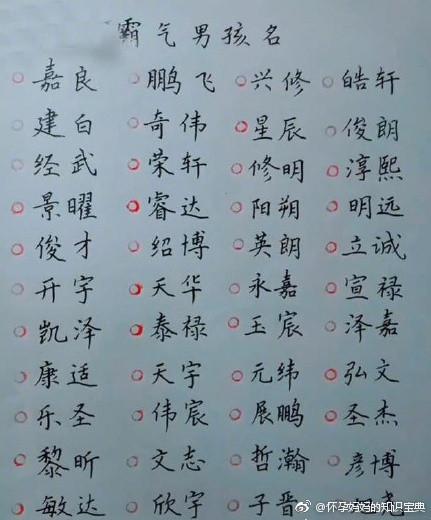 霸气男孩名
嘉良 鹏飞 兴修 皓轩
建白 奇伟 星辰 俊朗
经武 荣轩 修明 淳熙
景曜 睿达 阳朔 明远
俊才 绍博 英朗 立诚
开宇 天华 永嘉 宣禄
凯泽 泰禄 玉宸 泽嘉
康适 天宇 元纬 弘文
乐圣 伟宸 展鹏 圣杰
黎昕 文志 哲瀚 彦博
敏达 欣宇 子晋
@怀孕妈妈的知识宝典